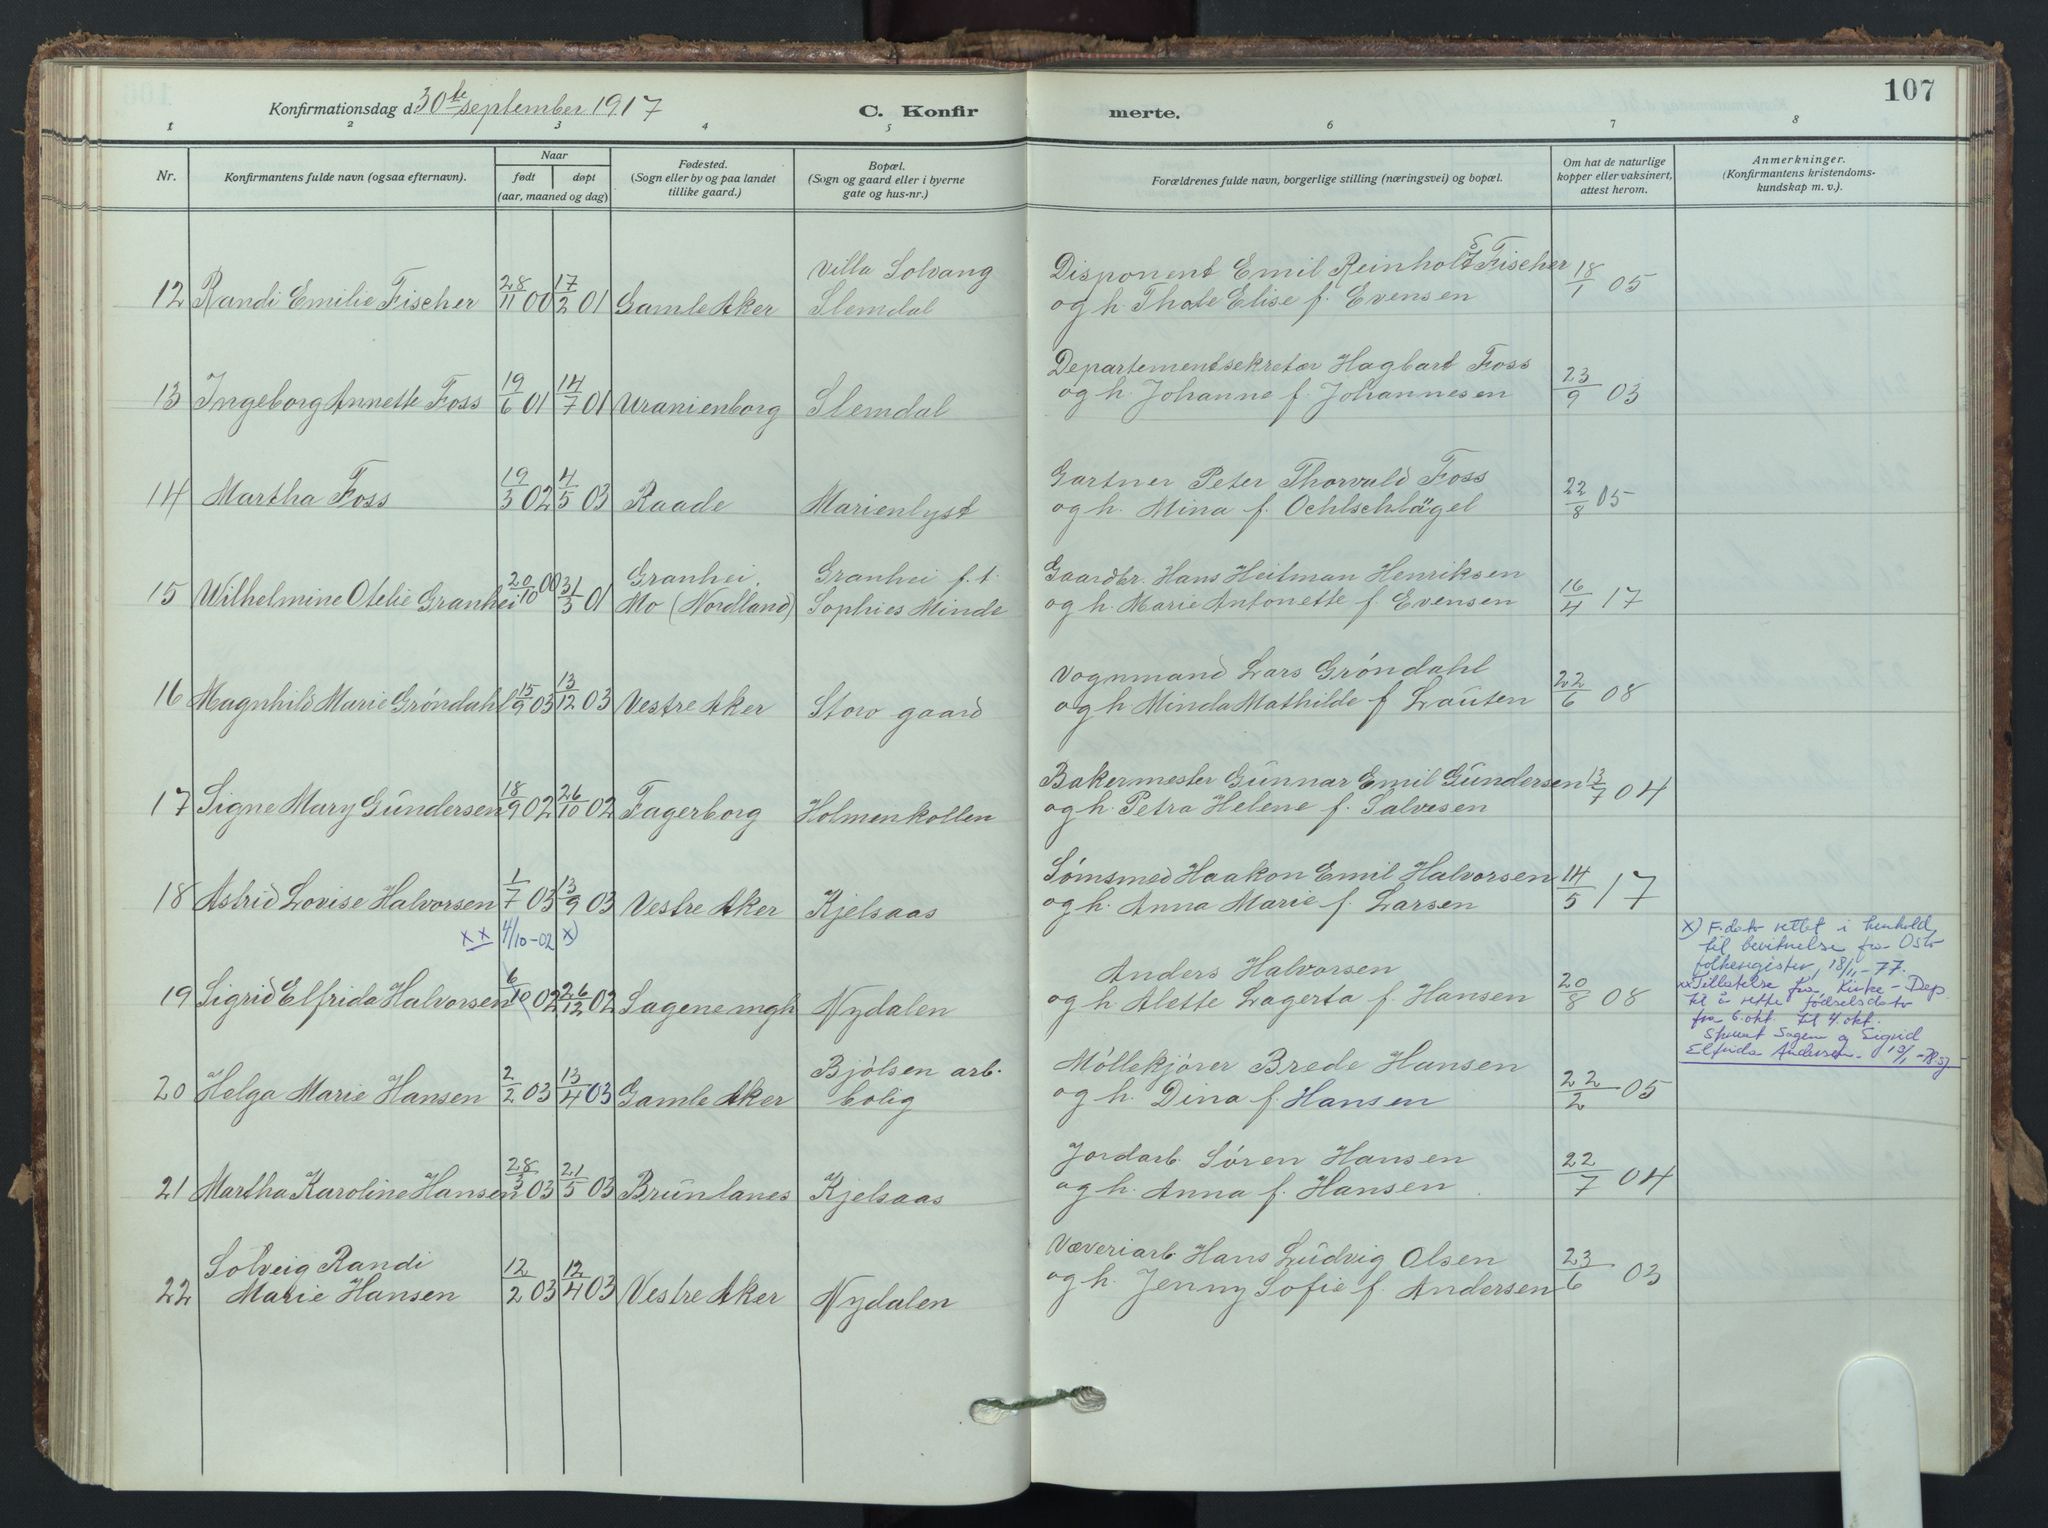 107
Konfirmationsdag d. 30te september 1917
C. Konfirmerte.
1 2 3 4 5 6 7 8
Nr.
Konfirmantens fulde navn (ogsaa efternavn).
Naar
født døpt
(aar, maaned og dag)
Fødested.
(Sogn eller by og paa landet
tillike gaard.)
Bopæl.
(Sogn og gaard eller i byerne
gate og hus-nr.)
Forældrenes fulde navn, borgerlige stilling (næringsvei) og bopæl.
Om hat de naturlige
kopper eller vaksinert,
attest herom.
Anmerkninger.
(Konfirmantens kristendoms-
kundskap m. v.).
12 Randi Emilie Fischer 28/11 00 17/2 01 Gamle Aker
Villa Solvang
Slemdal
Disponent Emil Reinholdt Fischer
og h. Thale Elise f. Evensen
18/1 05
13 Ingeborg Annette Foss 19/6 01 14/7 01 Uranienborg Slemdal
Departementsekretær Hagbart Foss
og h. Johanne f. Johannesen
23/9 03
14 Martha Foss 19/3 02 4/5 03 Raade Marienlyst
Gartner Peter Thorvald Foss
og h. Mina f. Oehlschlägel
22/8 05
15 Wilhelmine Otelie Granhei 20/10 00 31/3 01
Granhei,
Mo (Nordland)
Granhei f. t.
Sophies Minde
Gaardbr. Hans Heitman Henriksen
og h. Marie Antonette f. Evensen
16/4 17
16 Magnhild Marie Gróndahl 15/9 03 13/12 03 Vestre Aker Storo gaard
Vognmand Lars Gróndahl
og h Minda Mathilde f Lauten
22/6 08
17 Signe Mary Gundersen 18/9 02 26/10 02 Fagerborg Holmenkollen
Bakermester Gunnar Emil Gundersen
og h. Petra Helene f. Salvesen
13/7 04
18 Astrid Lovise Halvorsen 1/7 03 13/9 03 Vestre Aker Kjelsaas
Sómsmed Haakon Emil Halvorsen
og h. Anna Marie f. Larsen
14/5 17
xx 4/10-02 x)
19 Sigrid Elfrida Halvorsen 6/10 02 26/12 02 Sagene mgh Nydalen
Anders Halvorsen
og h. Alette Lagerta f. Hansen
20/8 08
x) F.dato rettet i henhold
til bevitnelse fra Oslo
folkeregister, 18/11-77.
xx Tillatelse fra Kirke-Dep
til å rette fødselsdato
fra 6.okt. til 4.okt.
Sigrid
Elfrida Andersen
20 Helga Marie Hansen 2/2 03 13/4 03 Gamle Aker
Bjólsen arb.
bolig
Móllekjórer Brede Hansen
og h. Dina f. Hansen
22/2 05
21 Martha Karoline Hansen 28/3 03 21/5 03 Brunlanes Kjelsaas
Jordarb. Sóren Hansen
og h. Anna f. Hansen
22/7 04
22 Solveig Randi
Marie Hansen
12/2 03 12/4 03 Vestre Aker Nydalen
Væveriarb. Hans Ludvig Olsen
og h. Jenny Sofie f. Andersen
23/6 03